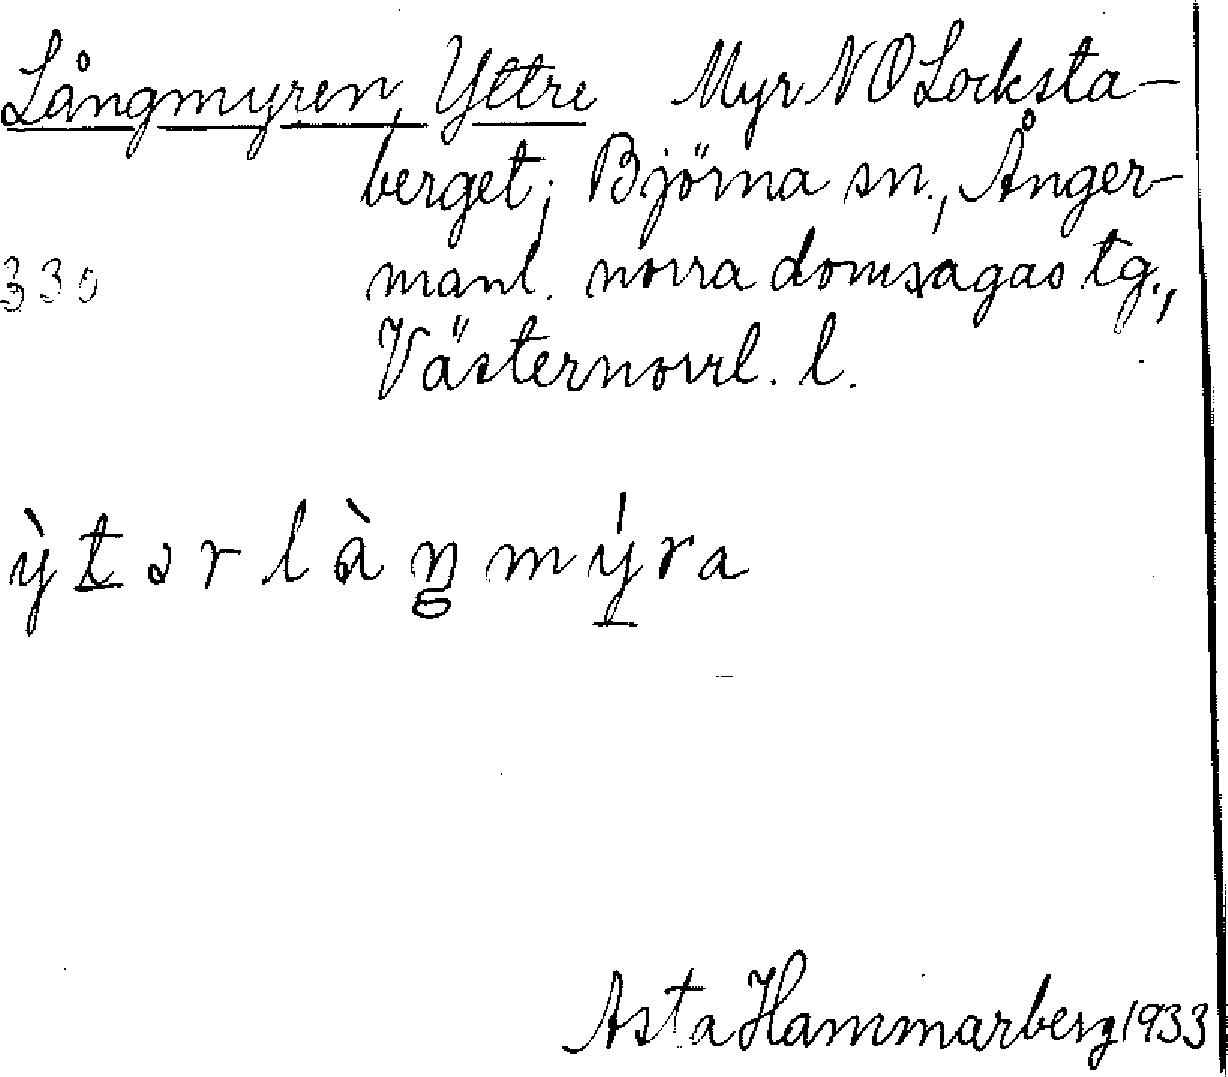 Långmyren, Yttre Myr NO Locksta-
berget, Björna sn., Ånger-
330 manl. norra domsagas tg.,
Västernorrl. l.
ỳt̲ərlàŋmý̲ra
Asta Hammarberg 1933